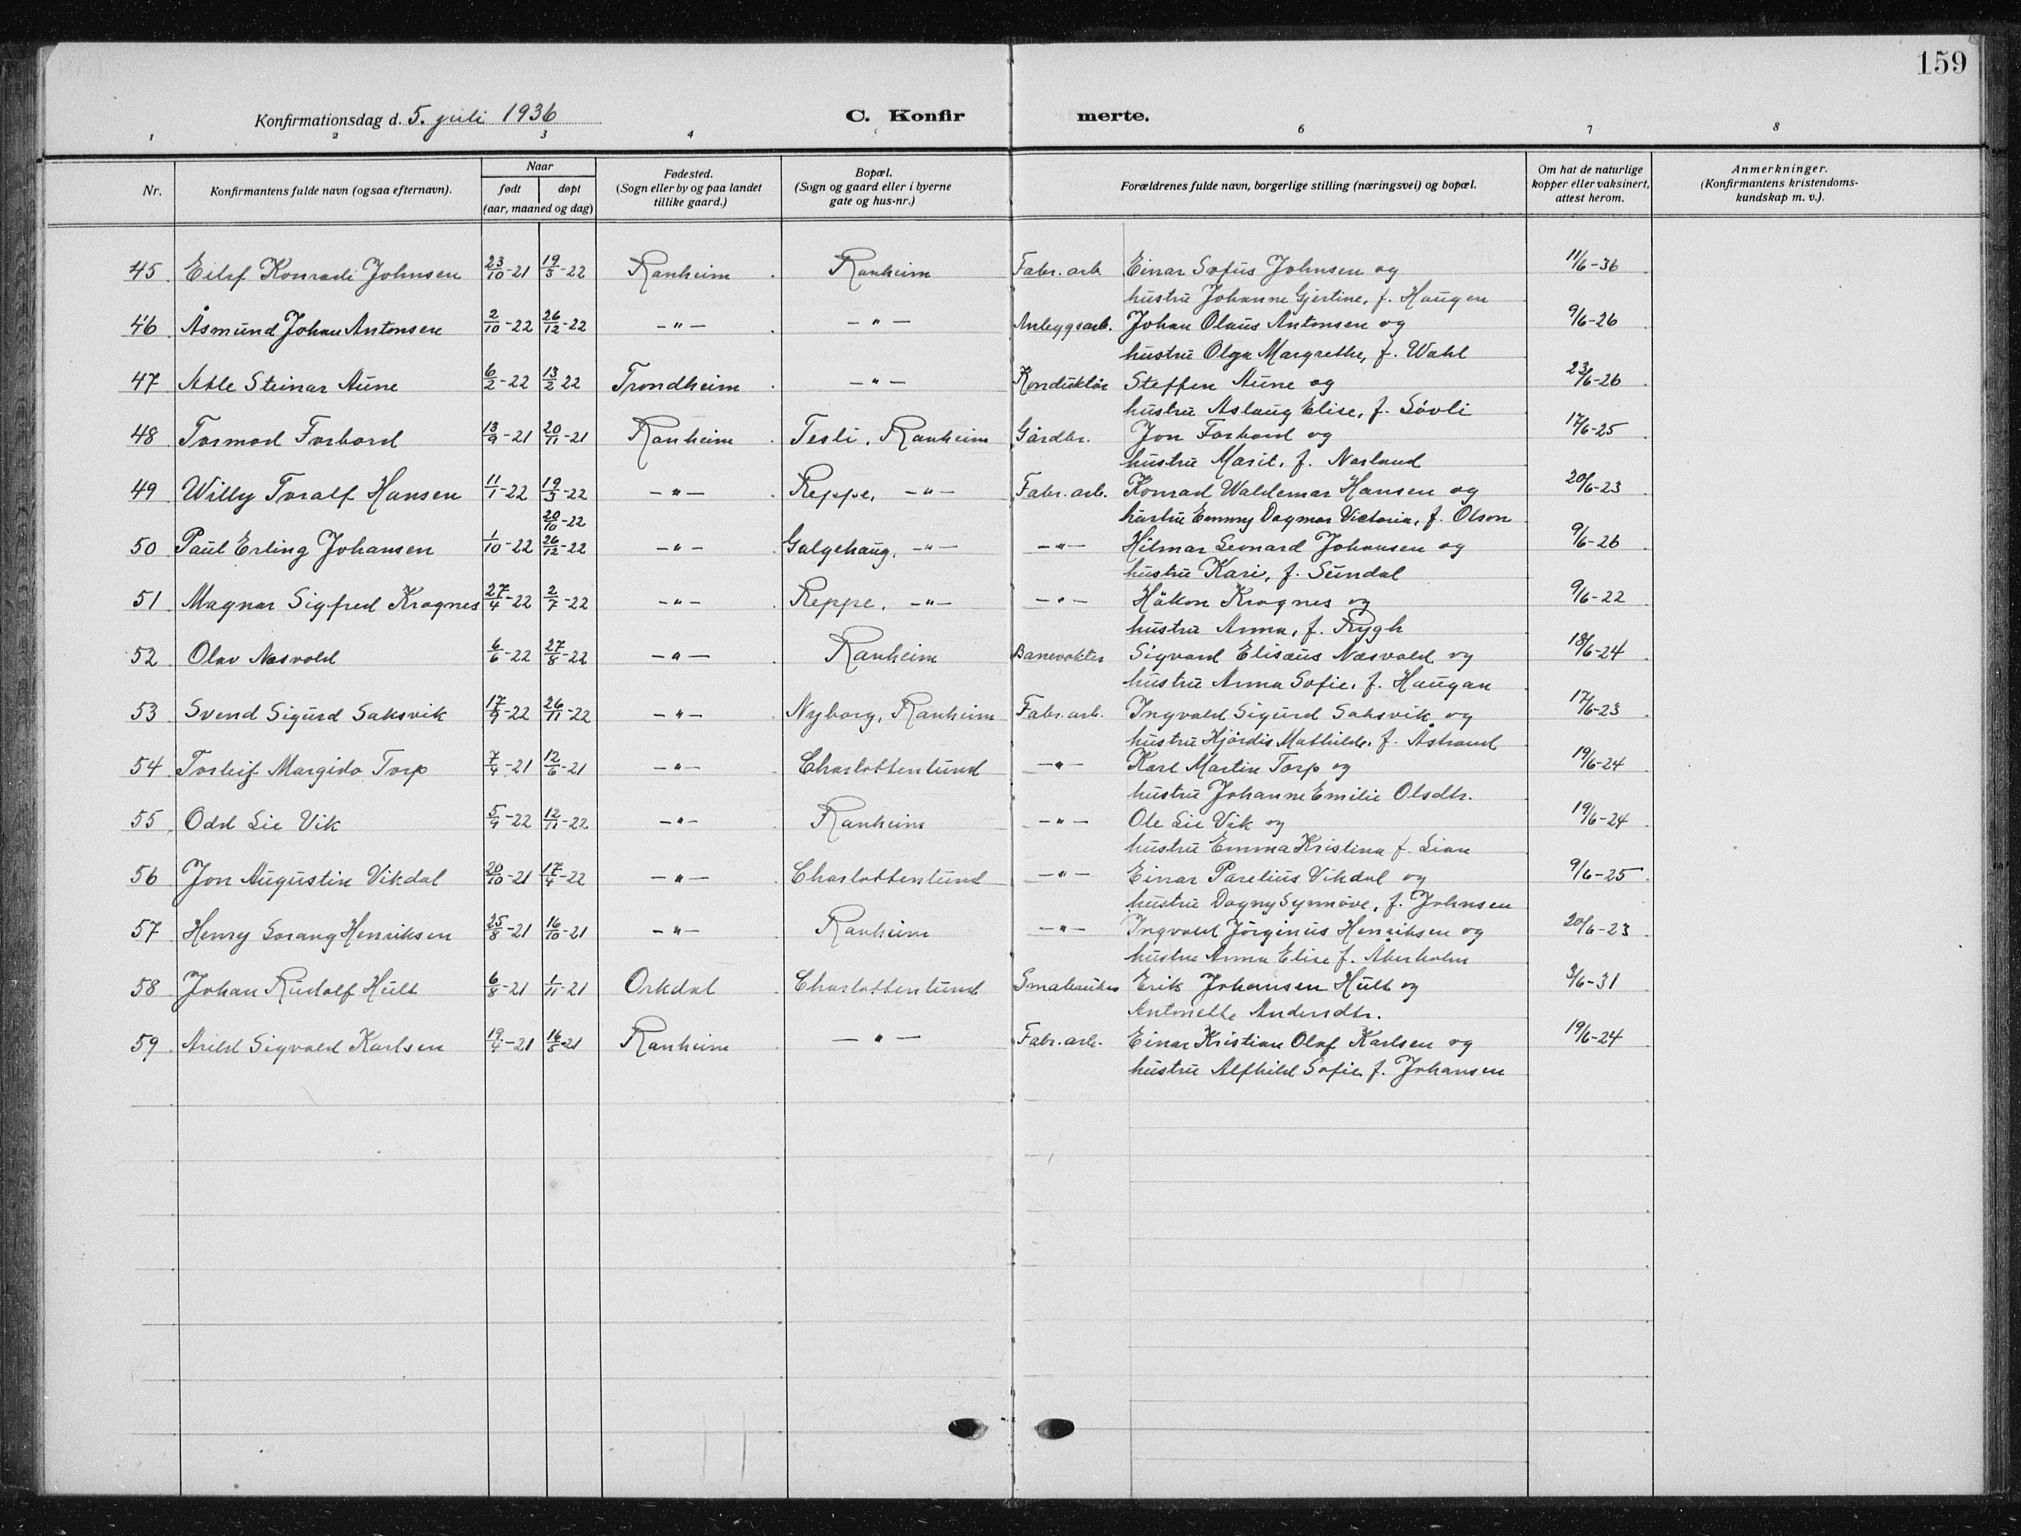 159
Konfirmationsdag d. 5. juli 1936 C. Konfir merte.
1 2 3 4 6 7 8
Nr. Konfirmantens fulde navn (ogsaa efternavn). Naar født døpt (aar, maaned og dag) Fødested. (Sogn eller by og paa landet tillike gaard.) Bopæl. (Sogn og gaard eller i byerne gate og hus-nr.) Forældrenes fulde navn, borgerlige stilling (næringsvei) og bopæl. Om hat de naturlige kopper eller vaksinert, attest herom. Anmerkninger. (Konfirmantens kristendoms-kundskap m. v.).
45 Eilif Konradi Johnsen 23/10-21 19/3-22 Ranheim Ranheim Fabr. arb. Einar Sofus Johnsen og 11/6-36
hustru Johanne Gjertine, f. Haugen
46 Åsmund Johan Antonsen 2/10-22 26/12-22 -"- -"- Anleggsarb. Johan Olaus Antonsen og 9/6-26
hustru Olga Margrethe, f. Wahl
47 Atle Steinar Aune 6/2-22 13/2 22 Trondheim -"- Konduktør Steffen Aune og 23/6-26
hustru Aslaug Elise, f. Løvli
48 Tormod Forbord 13/9-21 20/11-21 Ranheim Tesli, Ranheim Gårdbr. Jon Forbord og 17/6-25
hustru Marit, f. Norland
49 Willy Toralf Hansen 11/1-22 19/3-22 -"- Reppe, -"- Fabr. arb. Konrad Waldemar Hansen og 20/6-23
20/10-22 hustru Emmy Dagmar Victoria, f. Olson
50 Paul Erling Johansen 1/10-22 26/12-22 -"- Galgehaug, -"- -"- Hilmar Leonard Johansen og 9/6-26
hustru Kari, f. Sundal
51 Magnar Sigfred Krognes 27/4-22 2/7-22 -"- Reppe, -"- -"- Håkon Krognes og 9/6-22
hustru Anna, f. Rygh
52 Olav Næsvold 6/6-22 27/8-22 -"- Ranheim Banevokter Sigvard Elisæus Næsvold og 18/6-24
hustru Anna Sofie, f. Haugan
53 Svend Sigurd Saksvik 17/9-22 26/11-22 -"- Nyborg, Ranheim Fabr. arb. Ingvald Sigurd Saksvik og 17/6-23
hustru Hjørdis Mathilde, f. Åstrand
54 Torleif Margido Torp 7/4-21 12/6-21 -"- Charlottenlund -"- Karl Martin Torp og 19/6-24
hustru Johanne Emilie Olsdtr.
55 Odd Lie Vik 5/9-22 12/11-22 -"- Ranheim -"- Ole Lie Vik og 19/6-24
hustru Emma Kristina f. Lian
56 Jon Augustin Vikdal 20/10-21 17/4-22 -"- Charlottenlund -"- Einar Parelius Vikdal og 9/6-25
hustru Dagny Synnøve, f. Johnsen
57 Henry Sorang Henriksen 25/8-21 16/10-21 -"- Ranheim -"- Ingvald Jørginus Henriksen og 20/6-23
hustru Anna Elise f. Åkerholm
58 Johan Rudolf Hult 6/8-21 1/11-21 Orkdal Charlottenlund Erik Johansen Hult og 3/6-31
Antonette Andersdtr.
59 Arild Sigvald Karlsen 19/4-21 16/5-21 Ranheim -"- Fabr. arb. Einar Kristian Olaf Karlsen og 19/6-24
hustru Alfhild Sofie f. Johansen